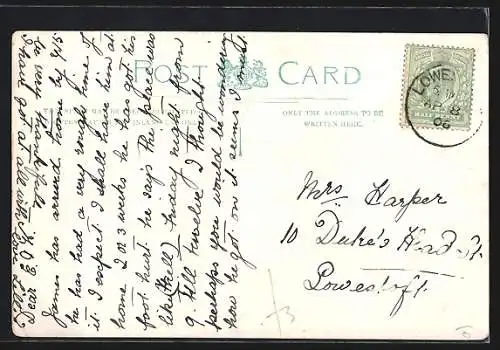 POST CARD
THE ADDRESS TO BE
ONLY THE ADDRESS TO BE
WRITTEN HERE.
LOWEST
AP 8
06
HALF
Mrs Harper
10 Duke's Head St
Lowestoft
Dear K & E
James has arrived home by 9/15
he has had a very rough time of
it. I expect I shall have him at
home 2 or 3 weeks he has got his
foot hurt. he says the place was
like (hell) Friday night from
9. till twelve I thought
perhaps you would be wondering
how he got on it seems I must
be very thankful
I have got at all with love